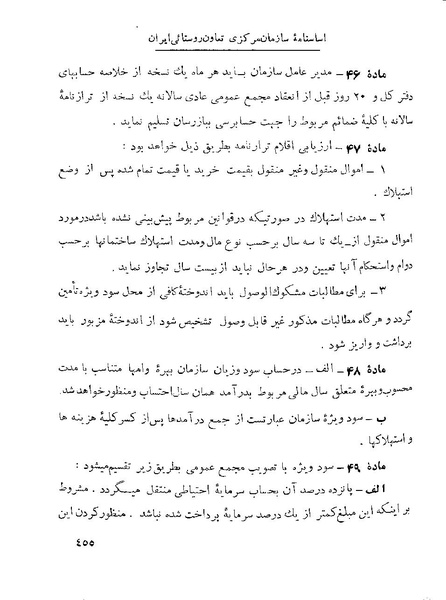 اساسنامهٔ سازمان مرکزی تعاون روستائی ایران
مادهٔ ۴۶ – مدیر عامل سازمان باید هر ماه یك نسخه از خلاصه حسابهای
دفتر کل و ۲۰ روز قبل از انعقاد مجمع عمومی عادی سالانه یك نسخه از ترازنامهٔ
سالانه با کلیهٔ ضمائم مربوط را جهت حسابرسی ببازرسان تسلیم نماید .
مادهٔ ۴۷ – ارزیابی اقلام ترازنامه بطریق ذیل خواهد بود :
۱ – اموال منقول وغیر منقول بقیمت خرید یا قیمت تمام شده پس از وضع
استهلاك .
۲ – مدت استهلاك در صورتیکه درقوانین مربوط پیش‌بینی نشده باشددرمورد
اموال منقول از یك تا سه سال برحسب نوع مال ومدت استهلاك ساختمانها برحسب
دوام واستحکام آنها تعیین ودر هرحال نباید ازبیست سال تجاوز نماید .
۳ – برای مطالبات مشکوك‌الوصول باید اندوختهٔ کافی از محل سود ویژه تأمین
گردد و هرگاه مطالبات مذکور غیر قابل وصول تشخیص شود از اندوختهٔ مزبور باید
برداشت و واریز شود .
مادهٔ ۴۸ – الف – درحساب سود وزیان سازمان بهرهٔ وامها متناسب با مدت
محسوب وبهرهٔ متعلق سال مالی مربوط بدرآمد همان سال احتساب ومنظورخواهد شد.
ب – سود ویژهٔ سازمان عبارتست از جمع درآمدها پس از کسر کلیهٔ هزینه ها
و استهلاکها .
مادهٔ ۴۹ – سود ویژه با تصویب مجمع عمومی بطریق زیر تقسیم میشود :
الف – پانزده درصد آن بحساب سرمایهٔ احتیاطی منتقل میگردد . مشروط
بر اینکه این مبلغ کمتر از یك درصد سرمایهٔ پرداخت شده نباشد . منظورکردن این
۴۵۵